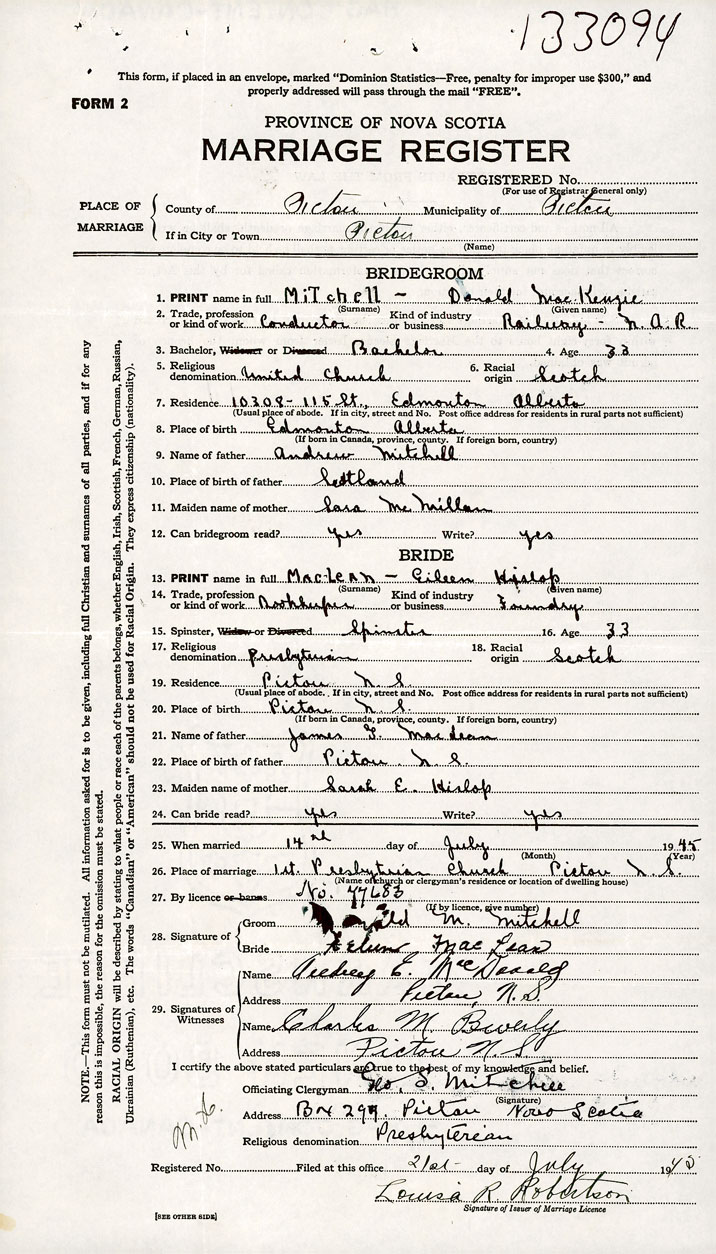 133094
This form, if placed in an envelope, marked "Dominion Statistics—Free, penalty for improper use $300," and
properly addressed will pass through the mail "FREE".
FORM 2
PROVINCE OF NOVA SCOTIA
MARRIAGE REGISTER
REGISTERED No.
(For use of Registrar General only)
PLACE OF MARRIAGE
County of Pictou Municipality of Pictou
If in City or Town Pictou
(Name)
BRIDEGROOM
1. PRINT name in full Mitchell - Donald MacKenzie
(Surname) (Given name)
2. Trade, profession or kind of work Conductor Kind of industry or business Railway - N.A.R
3. Bachelor, Widower or Divorced Bachelor 4. Age 33
5. Religious denomination United Church 6. Racial origin Scotch
7. Residence 10308-115 St., Edmonton Alberta
(Usual place of abode. If in city, street and No. Post office address for residents in rural parts not sufficient)
8. Place of birth Edmonton Alberta
(If born in Canada, province, county. If foreign born, country)
9. Name of father Andrew Mitchell
10. Place of birth of father Scotland
11. Maiden name of mother Sara McMillan
12. Can bridegroom read? yes Write? yes
BRIDE
13. PRINT name in full MacLean - Eileen Hislop
(Surname) (Given name)
14. Trade, profession or kind of work Bookkeeper Kind of industry or business Foundry
15. Spinster, Widow or Divorced Spinster 16. Age 33
17. Religious denomination Presbyterian 18. Racial origin Scotch
19. Residence Pictou N.S.
(Usual place of abode. If in city, street and No. Post office address for residents in rural parts not sufficient)
20. Place of birth Pictou N.S.
(If born in Canada, province, county. If foreign born, country)
21. Name of father James G. MacLean
22. Place of birth of father Pictou N.S.
23. Maiden name of mother Sarah E. Hislop
24. Can bride read? yes Write? yes
25. When married 14th day of July 1945
(Month) (Year)
26. Place of marriage 1st. Presbyterian Church Pictou N.S.
(Name of church or clergyman's residence or location of dwelling house)
27. By licence or banns No. 77683
(If by licence, give number)
28. Signature of
Groom M. Mitchell
Bride MacLean
29. Signatures of Witnesses
Name Audrey E. MacDonald
Address Pictou, N.S.
Name Charles M Beverly
Address Pictou N S
I certify the above stated particulars are true to the best of my knowledge and belief.
Officiating Clergyman Geo. S. Mitchell
(Signature)
Address Box 299, Pictou Nova Scotia
Religious denomination Presbyterian
Registered No. Filed at this office 21st day of July 1945
Louisa R Robertson
Signature of Issuer of Marriage Licence
[SEE OTHER SIDE]
NOTE.—This form must not be mutilated. All information asked for is to be given, including full Christian and surnames of all parties, and if for any
reason this is impossible, the reason for the omission must be stated.
RACIAL ORIGIN will be described by stating to what people or race each of the parents belongs, whether English, Irish, Scottish, French, German, Russian,
Ukrainian (Ruthenian), etc. The words "Canadian" or "American" should not be used for Racial Origin. They express citizenship (nationality).